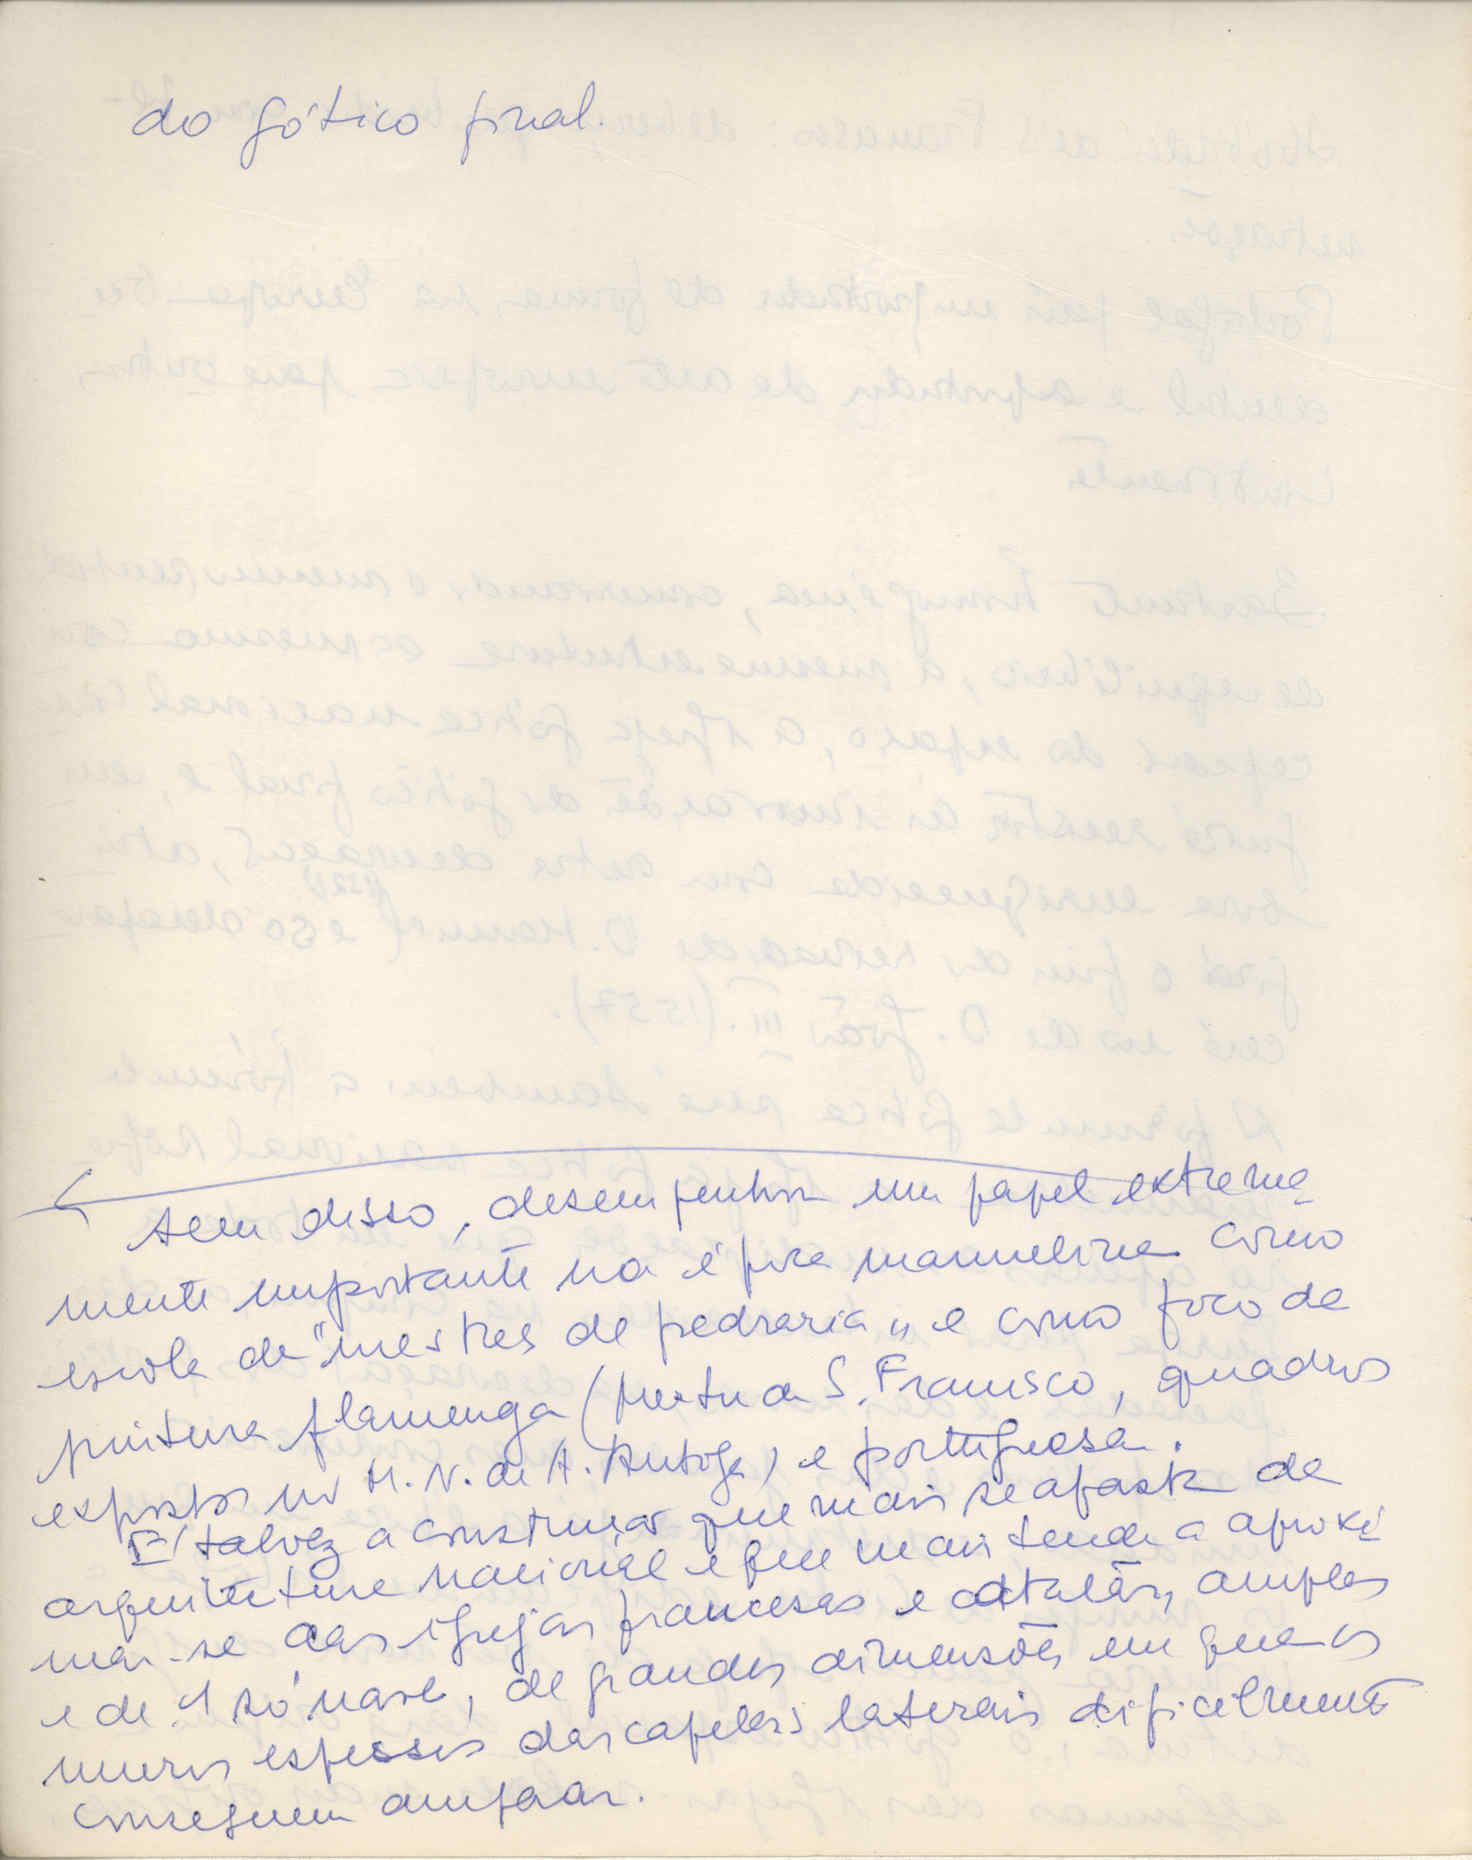 do gótico final.
Além disso, desempenhou um papel extrema
mente importante na época manuelina como
escola de "mestres de pedraria" e como foco de
pintura flamenga ( de S. Francisco, quadros
expostos no M. N. de A. Antiga) e portuguesa.
É talvez a construção que mais se afasta da
arquitectura nacional e que mais tende a aproxi
mar-se das igrejas francesas e catalãs, amplas
e de 1 só nave, de grandes dimensões em que os
muros espessos das capelas laterais dificilmente
conseguem amparar.